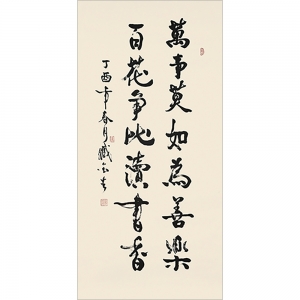 萬事莫如為善樂
百花争比讀書香
丁酉年春月